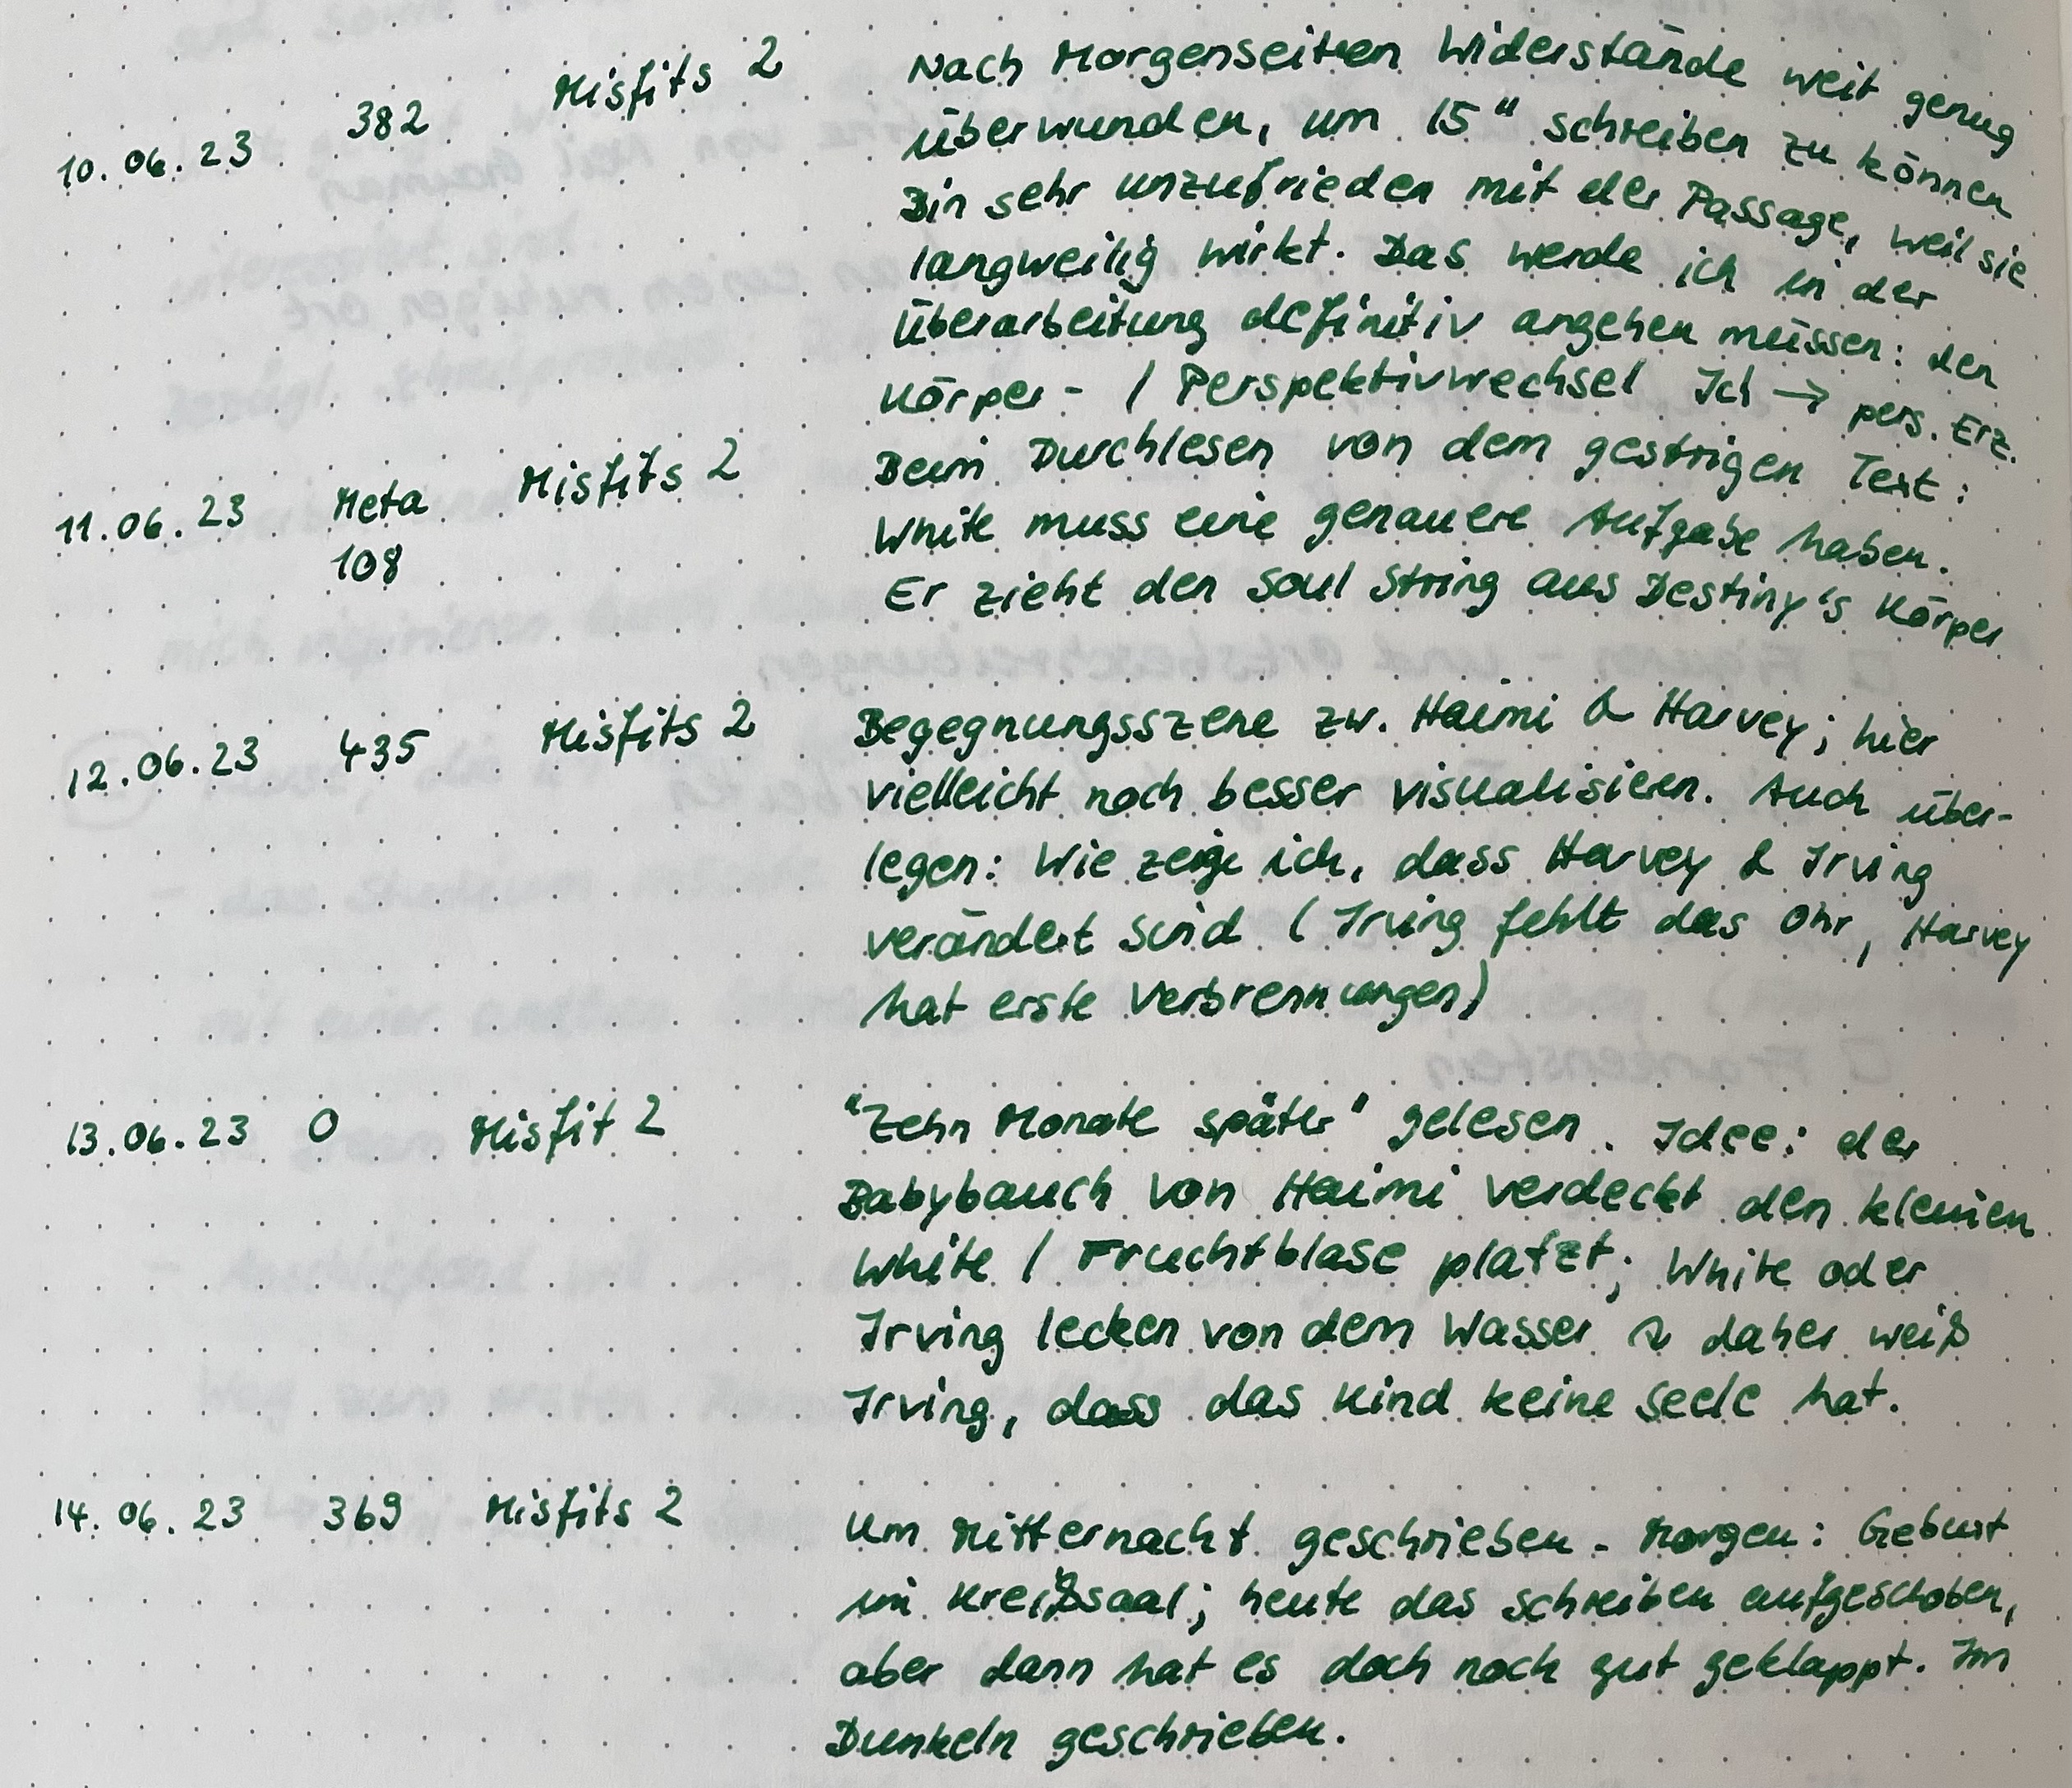 10.06.23 382 Misfits 2 Nach Morgenseiten Widerstände weit genug
überwunden, um 15" schreiben zu können
Bin sehr unzufrieden mit der Passage, weil sie
langweilig wirkt. Das werde ich in der
Überarbeitung definitiv angehen müssen: den
Körper- / Perspektivwechsel Ich → pers. Erz.
11.06.23 Meta Misfits 2 Beim Durchlesen von dem gestrigen Text:
108 White muss eine genauere Aufgabe haben.
Er zieht den Soul String aus Destiny's Körper
12.06.23 435 Misfits 2 Begegnungsszene zw. Haimi & Harvey; hier
vielleicht noch besser visualisieren. Auch über-
legen: Wie zeige ich, dass Harvey & Irving
verändert sind (Irving fehlt das Ohr, Harvey
hat erste Verbrennungen)
13.06.23 0 Misfit 2 "Zehn Monate später" gelesen. Idee: der
Babybauch von Haimi verdeckt den kleinen
White / Fruchtblase platzt; White oder
Irving lecken von dem Wasser & daher weiß
Irving, dass das Kind keine Seele hat.
14.06.23 369 Misfits 2 Um Mitternacht geschrieben. Morgen: Geburt
im Kreißsaal; heute das Schreiben aufgeschoben,
aber dann hat es doch noch gut geklappt. Im
Dunkeln geschrieben.